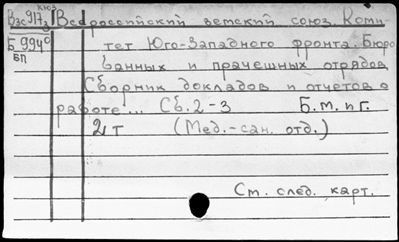 Кюз
Взс917з Всероссийский земский союз. Коми-
Б994° тет Юго-Западного фронта. Бюро
БП банных и прачешных отрядов
Сборник докладов и отчетов о
работе... Сб. 2-3 Б.м. и г.
2т (Мед.-сан. отд.)
См. след. карт.